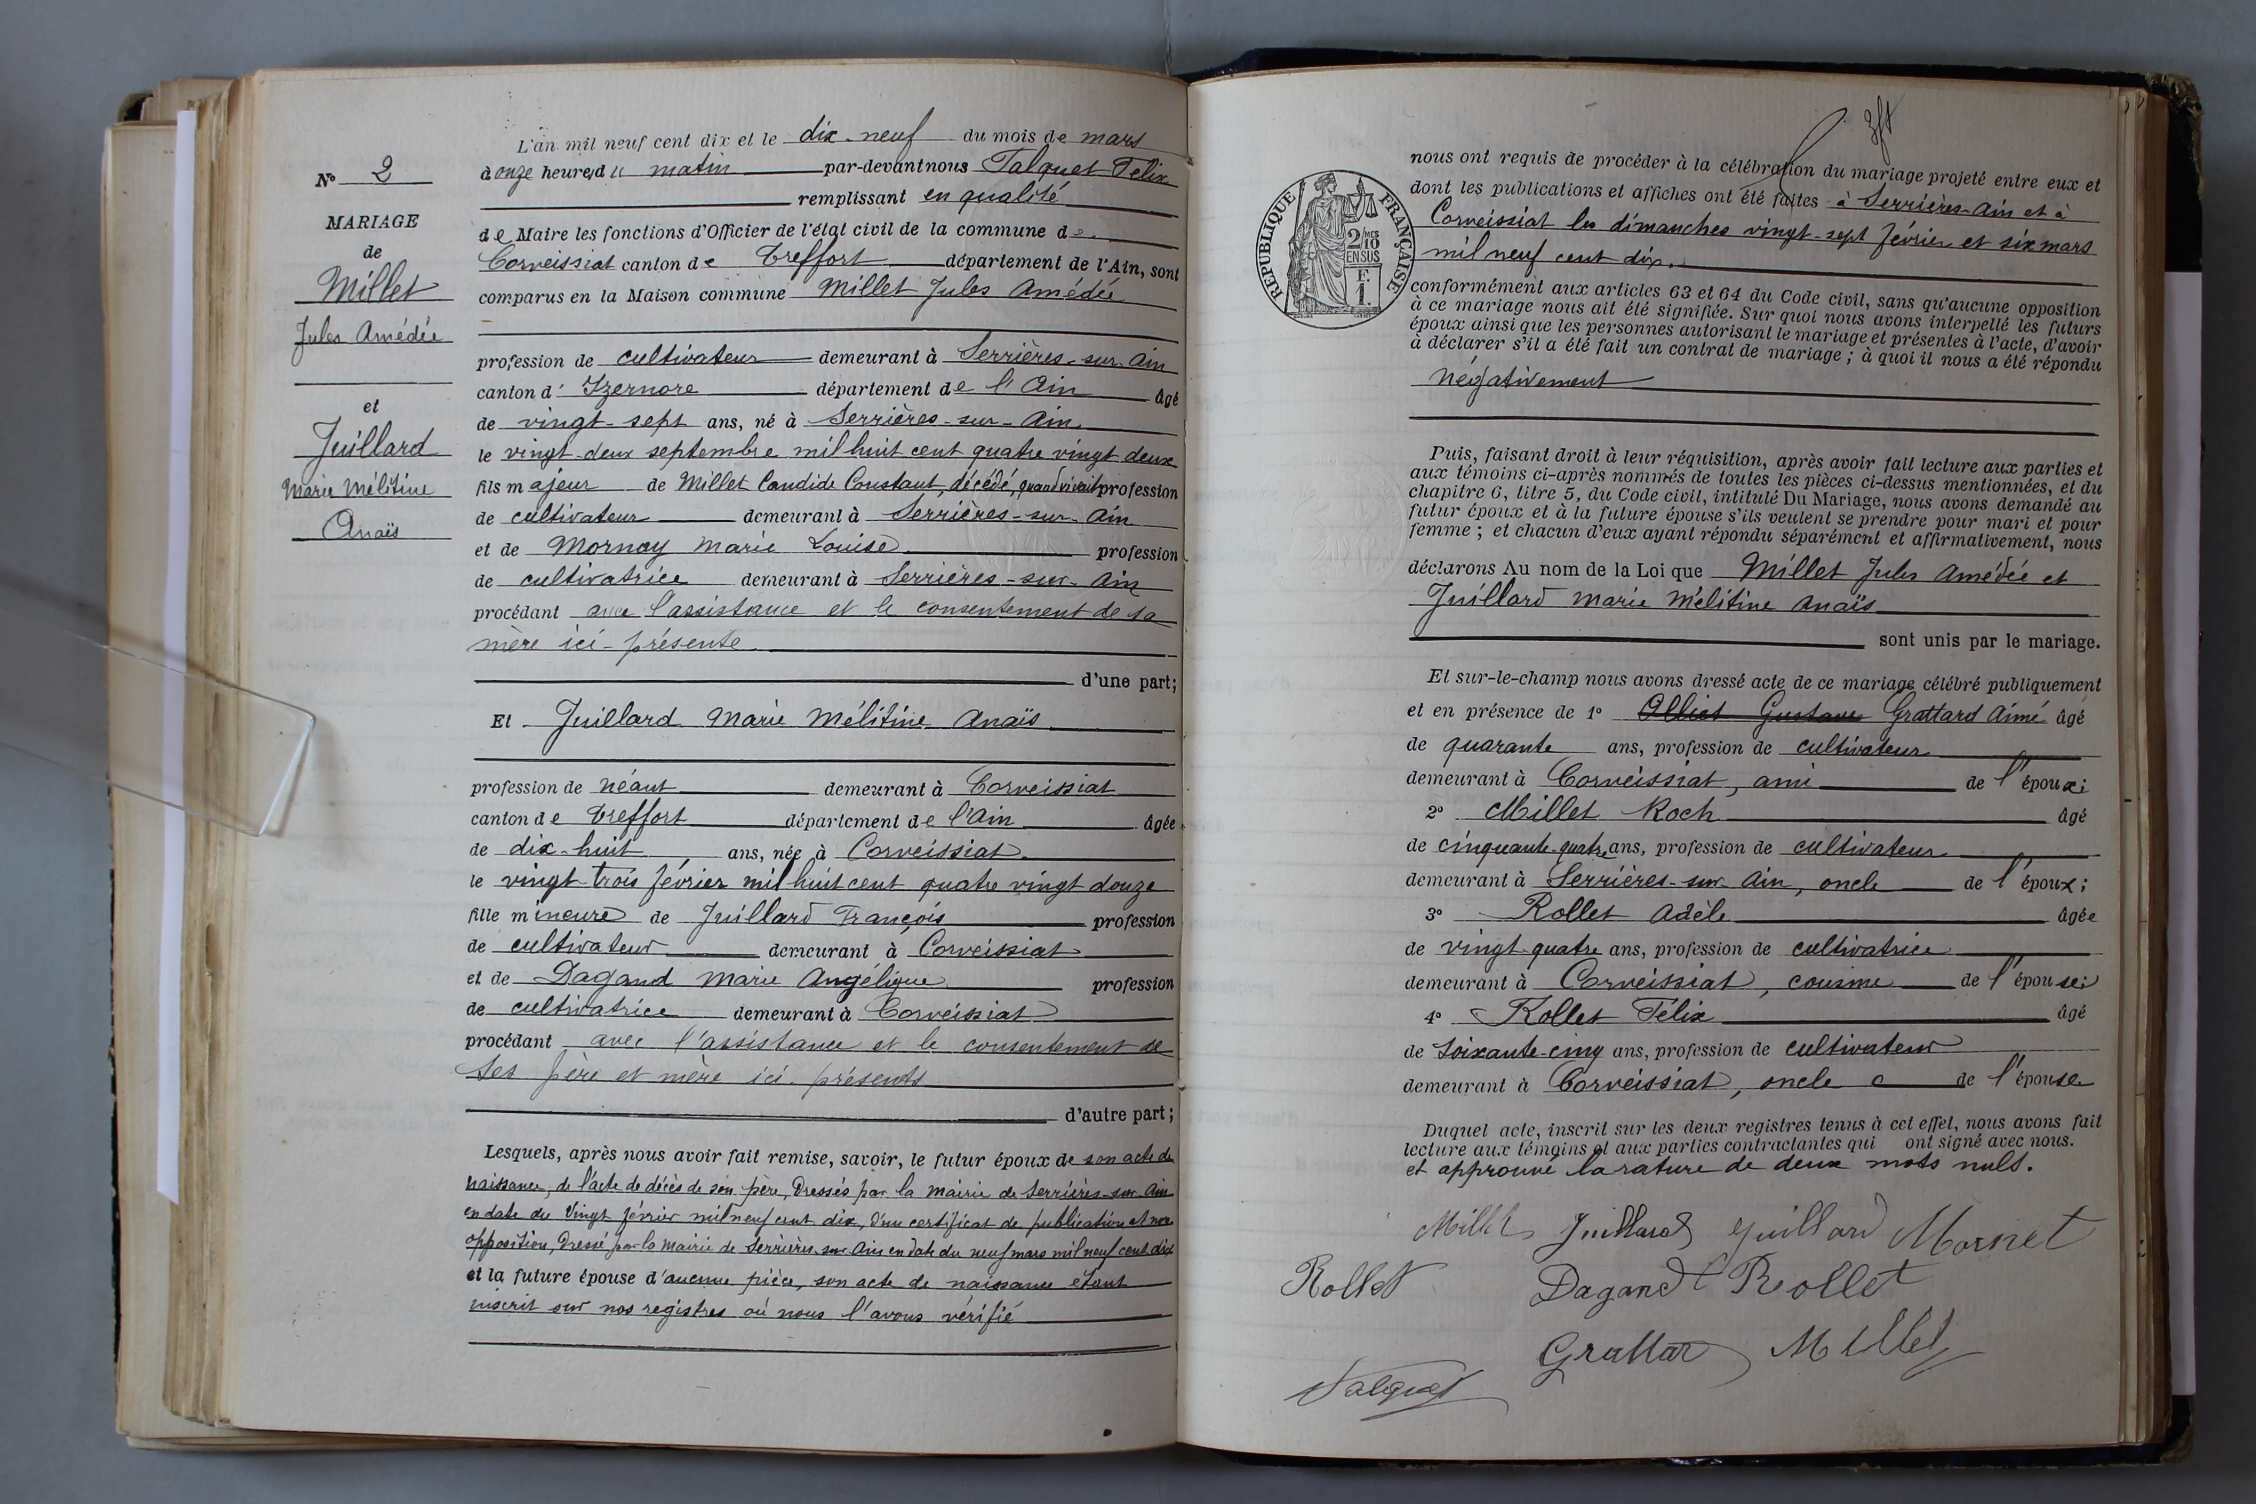 N° 2
MARIAGE
de
Millet
Jules Amédée
et
Juillard
Marie Mélitine
Anaïs
L'an mil neuf cent dix et le dix-neuf du mois de mars
à onze heures du matin par-devant nous Talquet Félix
remplissant en qualité
de Maire les fonctions d'Officier de l'état civil de la commune de
Corveissiat canton de Treffort département de l'Ain, sont
comparus en la Maison commune Millet Jules Amédée
profession de cultivateur demeurant à Serrières-sur-Ain
canton d' Izernore département de l'Ain âgé
de vingt-sept ans, né à Serrières-sur-Ain
le vingt-deux septembre mil huit cent quatre vingt deux
fils majeur de Millet Candide Constant, décédé, quand vivait profession
de cultivateur demeurant à Serrières-sur-Ain
et de Mornay Marie Louise profession
de cultivatrice demeurant à Serrières-sur-Ain
procédant avec l'assistance et le consentement de sa
mère ici-présente
d'une part;
Et Juillard Marie Mélitine Anaïs
profession de néant demeurant à Corveissiat
canton de Treffort département de l'Ain âgée
de dix-huit ans, née à Corveissiat
le vingt-trois février mil huit cent quatre vingt douze
fille mineure de Juillard François profession
de cultivateur demeurant à Corveissiat
et de Dagand Marie Angélique profession
de cultivatrice demeurant à Corveissiat
procédant avec l'assistance et le consentement de
ses père et mère ici-présents
d'autre part;
Lesquels, après nous avoir fait remise, savoir, le futur époux de son acte de
naissance, de l'acte de décès de son père, dressés par la mairie de Serrières-sur-Ain
en date du vingt février mil neuf cent dix, d'un certificat de publication et non
opposition, dressé par la mairie de Serrières-sur-Ain en date du neuf mars mil neuf cent dix
et la future épouse d'aucune pièce, son acte de naissance étant
inscrit sur nos registres où nous l'avons vérifié
RÉPUBLIQUE FRANÇAISE
2/10
EN SUS
F.
1.
nous ont requis de procéder à la célébration du mariage projeté entre eux et
dont les publications et affiches ont été faites à Serrières-Ain et à
Corveissiat les dimanches vingt-sept février et six mars
mil neuf cent dix.
conformément aux articles 63 et 64 du Code civil, sans qu'aucune opposition
à ce mariage nous ait été signifiée. Sur quoi nous avons interpellé les futurs
époux ainsi que les personnes autorisant le mariage et présentes à l'acte, d'avoir
à déclarer s'il a été fait un contrat de mariage ; à quoi il nous a été répondu
négativement
Puis, faisant droit à leur réquisition, après avoir fait lecture aux parties et
aux témoins ci-après nommés de toutes les pièces ci-dessus mentionnées, et du
chapitre 6, titre 5, du Code civil, intitulé Du Mariage, nous avons demandé au
futur époux et à la future épouse s'ils veulent se prendre pour mari et pour
femme ; et chacun d'eux ayant répondu séparément et affirmativement, nous
déclarons Au nom de la Loi que Millet Jules Amédée et
Juillard Marie Mélitine Anaïs
sont unis par le mariage.
Et sur-le-champ nous avons dressé acte de ce mariage célébré publiquement
et en présence de 1° Olliet Gustave Grattard Aimé âgé
de quarante ans, profession de cultivateur
demeurant à Corveissiat, ami de l'époux;
2° Millet Roch âgé
de cinquante-quatre ans, profession de cultivateur
demeurant à Serrières-sur-Ain, oncle de l'époux;
3° Rollet Adèle âgée
de vingt-quatre ans, profession de cultivatrice
demeurant à Corveissiat, cousine de l'épouse;
4° Rollet Félix âgé
de soixante-cinq ans, profession de cultivateur
demeurant à Corveissiat, oncle de l'épouse
Duquel acte, inscrit sur les deux registres tenus à cet effet, nous avons fait
lecture aux témoins et aux parties contractantes qui ont signé avec nous.
et approuvé la rature de deux mots nuls.
Millet Juillard Juillard Mornet
Rollet Dagand Rollet
Grattard Millet
Talquet